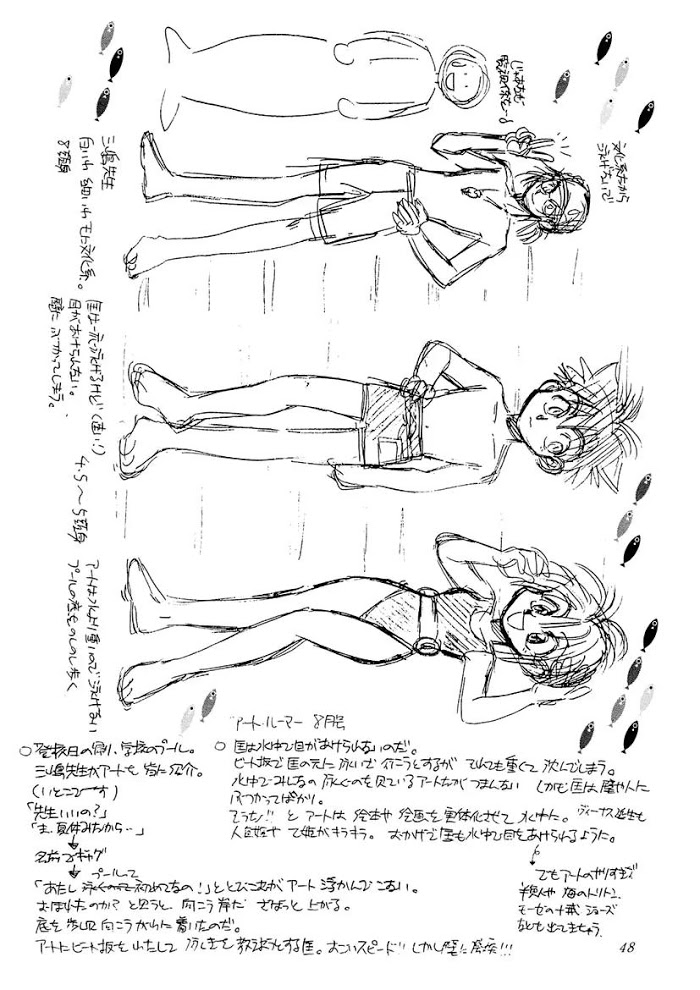 じゃあも
文化系だから
泳げないで
三嶋先生
白いわ 細いわ モロ文化系。
8頭身
匡は一応泳げるけど(速い!)
目があけられない。
壁にぶつかってしまう。
4.5〜5頭身
アートは水より重いので泳げない
プールの底をのしのし歩く
アート・ルーマー 8月号
○登校日の帰り、学校のプール。
三嶋先生がアートを皆に紹介。
(いとこでーす)
「先生いいの?」
「ま、夏休みだから‥」
↓
名前でギャグ
↓ プールで
「あたし泳ぐの初めてなの!」ととびこむがアート浮かんでこない。
おぼれたのか?と思うと 向こう岸だ ざばっと上がる。
底を歩いて向こうがわに着いたのだ。
アートにビート板をわたして 泳しを教えようとする匡。すごいスピード!!しかし壁に激突!!!
○ 匡は水中で目があけられないのだ。
ビート板で匡の元に泳いで行こうとするが とても重くて沈んでしまう。
水中でみんなの泳ぐのを見ているアートだがつまんない しかも匡は壁や人に
ぶつかってばかり。
そうだ!! と アートは 絵本や絵画を実体化させて水中に。ヴィーナス誕生も
人魚姫や 乙姫がキラキラ。おかげで匡も水中で目をあけられるように。
でもアートのやりすぎで
半魚人や海のトリトン
モーゼの十戒 ジョーズ
なども出てきちゃう
48